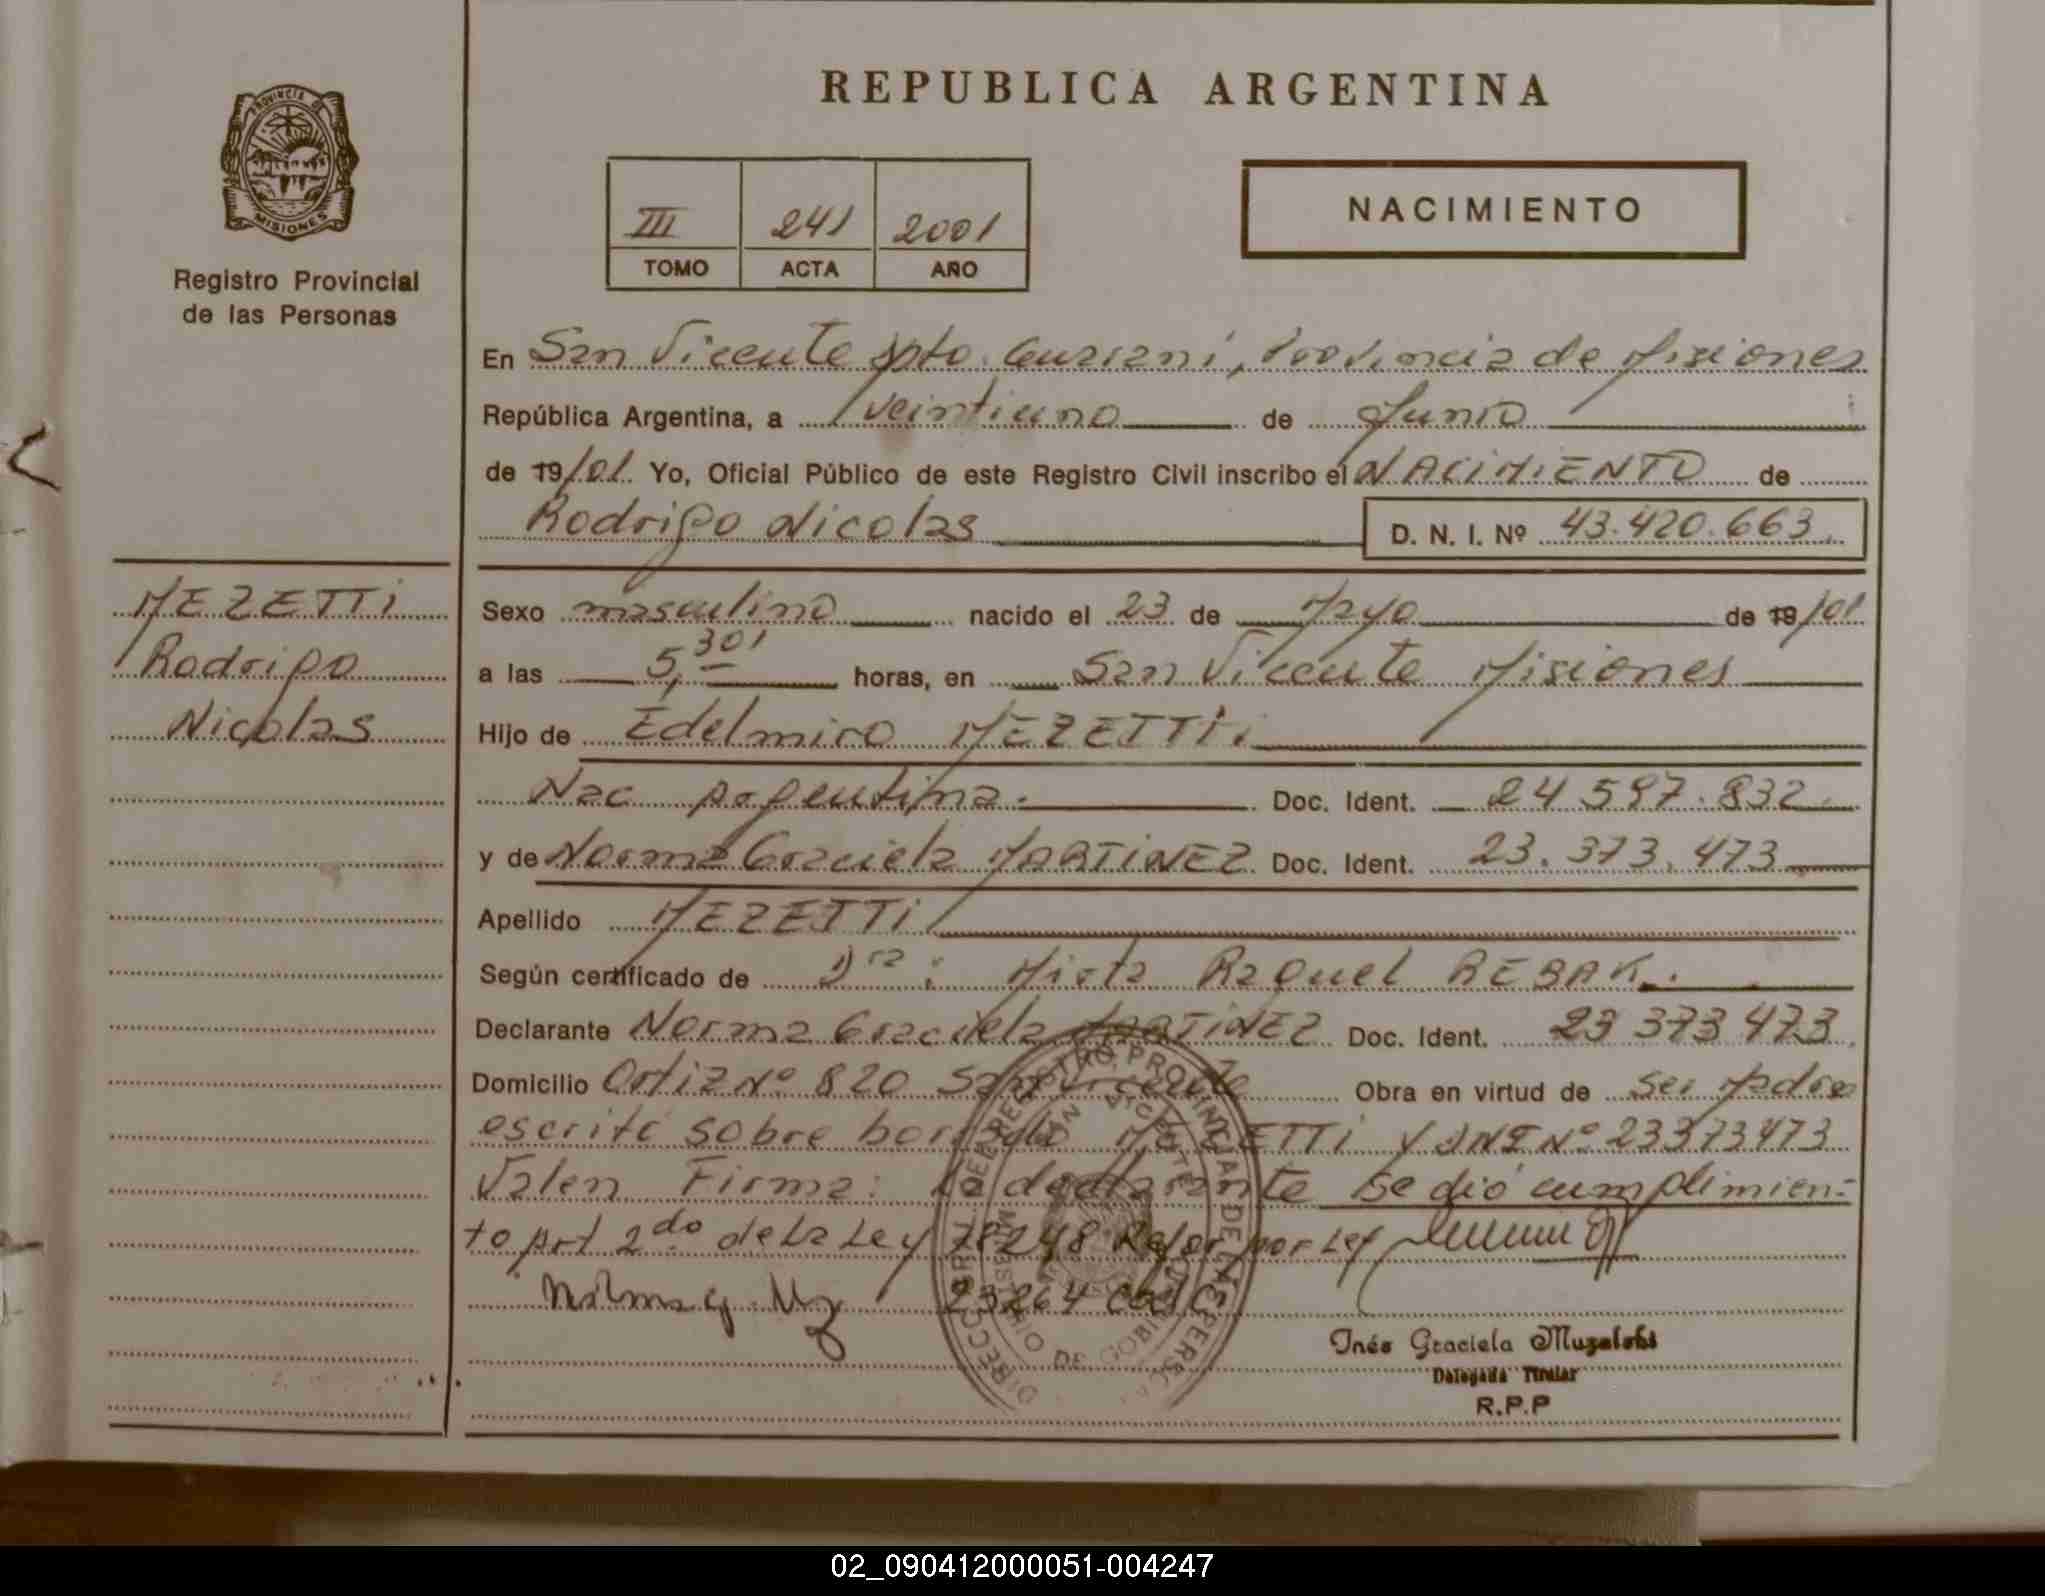 REPUBLICA ARGENTINA
PROVINCIA DE
MISIONES
Registro Provincial
de las Personas
III 241 2001
TOMO ACTA AÑO
NACIMIENTO
En San Vicente Dpto. Guarani, Provincia de Misiones
República Argentina, a veintiuno de Junio
de 19/01. Yo, Oficial Público de este Registro Civil inscribo el NACIMIENTO de
Rodrigo Nicolas D. N. I. Nº 43.420.663.
MEZETTI
Rodrigo
Nicolas
Sexo masculino nacido el 23 de Mayo de 19/01.
a las 5,30' horas, en San Vicente Misiones
Hijo de Edelmiro MEZETTI.
Nac Argentina. Doc. Ident. 24 597.832.
y de Norma Graciela MARTINEZ Doc. Ident. 23.373.473
Apellido MEZETTI
Según certificado de Dra: Mirta Raquel REBAK.
Declarante Norma Graciela MARTINEZ Doc. Ident. 23 373 473.
Domicilio Ortiz Nº 820 San Vicente Obra en virtud de ser Madre
escrito sobre borrado MEZETTI y DNI Nº 23373473
Valen Firma: La declarante Se dió cumplimien-
to Art 2do de la Ley 18248 Refor por Ley
23264
DIRECC. GRAL. DEL REGISTRO PROVINCIAL DE LAS PERS
SAN VICENTE
Inés Graciela Muzalski
Delegada Titular
R.P.P
02_090412000051-004247